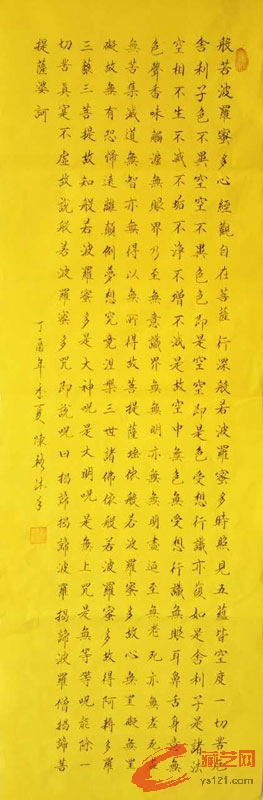 般若波羅蜜多心經觀自在菩薩行深般若波羅蜜多時照見五蘊皆空度一切苦厄
舍利子色不異空空不異色色即是空空即是色受想行識亦復如是舍利子是諸法
空相不生不滅不垢不淨不增不減是故空中無色無受想行識無眼耳鼻舌身意無
色聲香味觸法無眼界乃至無意識界無無明亦無無明盡乃至無老死亦無老死盡
無苦集滅道無智亦無得以無所得故菩提薩埵依般若波羅蜜多故心無罣礙無罣
礙故無有恐怖遠離顛倒夢想究竟涅槃三世諸佛依般若波羅蜜多故得阿耨多羅
三藐三菩提故知般若波羅蜜多是大神呪是大明呪是無上呪是無等等呪能除一
切苦真實不虛故說般若波羅蜜多呪即說呪曰揭諦揭諦波羅揭諦波羅僧揭諦菩
提薩婆訶
丁酉年季夏陳沐手
藏艺网
ys121.com